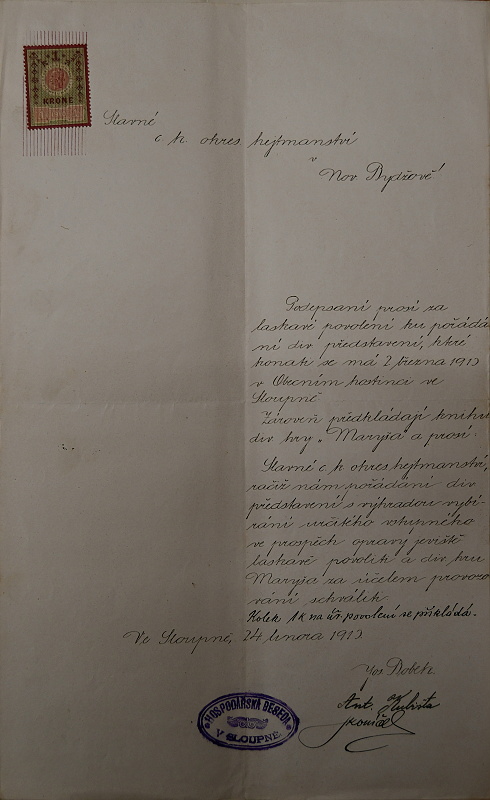 1
KRONE
Slavné
c. k. okres. hejtmanství
v
Nov. Bydžově
Podepsaní prosí za
laskavé povolení ku pořádá
ní div. představení, které
konati se má 2. března 1913
v Obecním hostinci ve
Sloupně
Zároveň předkládají knihu
div. hry „Maryša" a prosí:
Slavné c. k. okres. hejtmanství,
račiž nám pořádání div.
představení s výhradou vybí-
rání určitého vstupného
ve prospěch opravy jeviště
laskavě povoliti a div. hru
Maryša za účelem provozo
vání schváliti.
Kolek 1k na úř. povolení se přikládá.
Ve Sloupně, 24. února 1913
Jos.
Ant. Kubista
HOSPODÁŘSKÁ BESEDA
V SLOUPNĚ